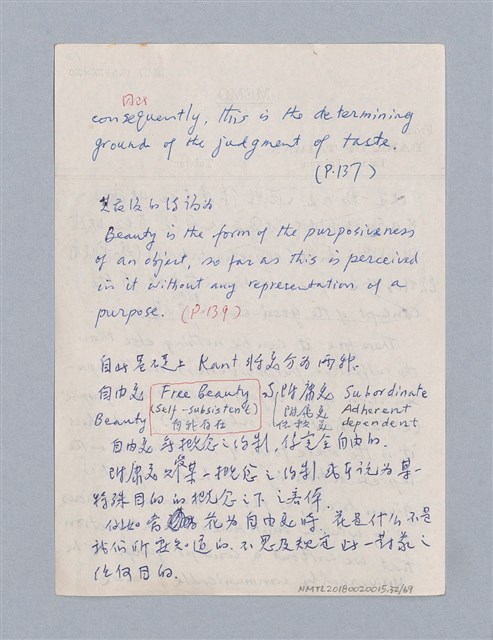 因此
consequently, this is the determining
ground of the judgment of taste.
(P.137)
其最後的結論為
Beauty is the form of the purposiveness
of an object, so far as this is perceived
in it without any representation of a
purpose. (P.139)
Kant 將美分為兩種
自由美 Free Beauty 附庸美 Subordinate
(Self-subsistent) 附屬美 Adherent
Beauty 自我存在 依賴美 dependent
自由美無概念之約制,係完全自由的.
附庸美受某一概念之約制 或可說為某一
特殊目的的概念之下之條件.
例如當 花為自由美時. 花是什么不是
我們所要知道的.不思及規定此一對象之
任何目的.
NMTL20180020015.32/69